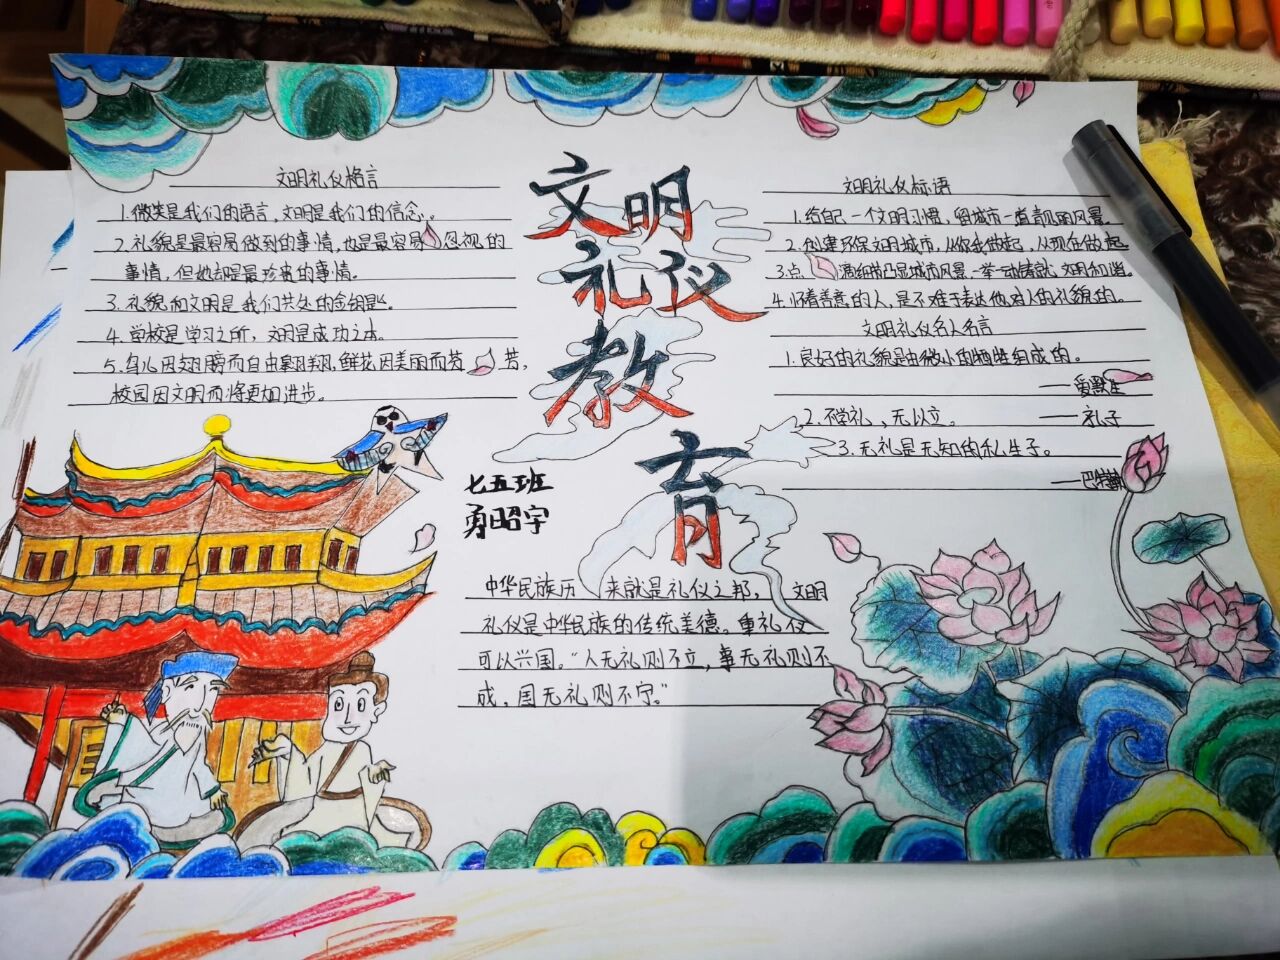 文明礼仪教育
七五班
勇昭宇
文明礼仪格言
1.微笑是我们的语言,文明是我们的信念。
2.礼貌是最容易做到的事情,也是最容易忽视的
事情,但她却是最珍贵的事情。
3.礼貌和文明是我们共处的金钥匙。
4.学校是学习之所,文明是成功之本。
5.鸟儿因翅膀而自由翱翔,鲜花因美丽而芬芳,
校园因文明而将更加进步。
文明礼仪标语
1.给自己一个文明习惯,留城市一道靓丽风景。
2.创建环保文明城市,从你我做起,从现在做起
3.点滴细节凸显城市风景一举一动铸就文明和谐。
4.怀着善意的人,是不难于表达他对人的礼貌的。
文明礼仪名人名言
1.良好的礼貌是由微小的牺牲组成的。
——爱默生
2.不学礼,无以立。——孔子
3.无礼是无知的私生子。
中华民族历来就是礼仪之邦,文明
礼仪是中华民族的传统美德。重礼仪
可以兴国。"人无礼则不立,事无礼则不
成,国无礼则不宁。"